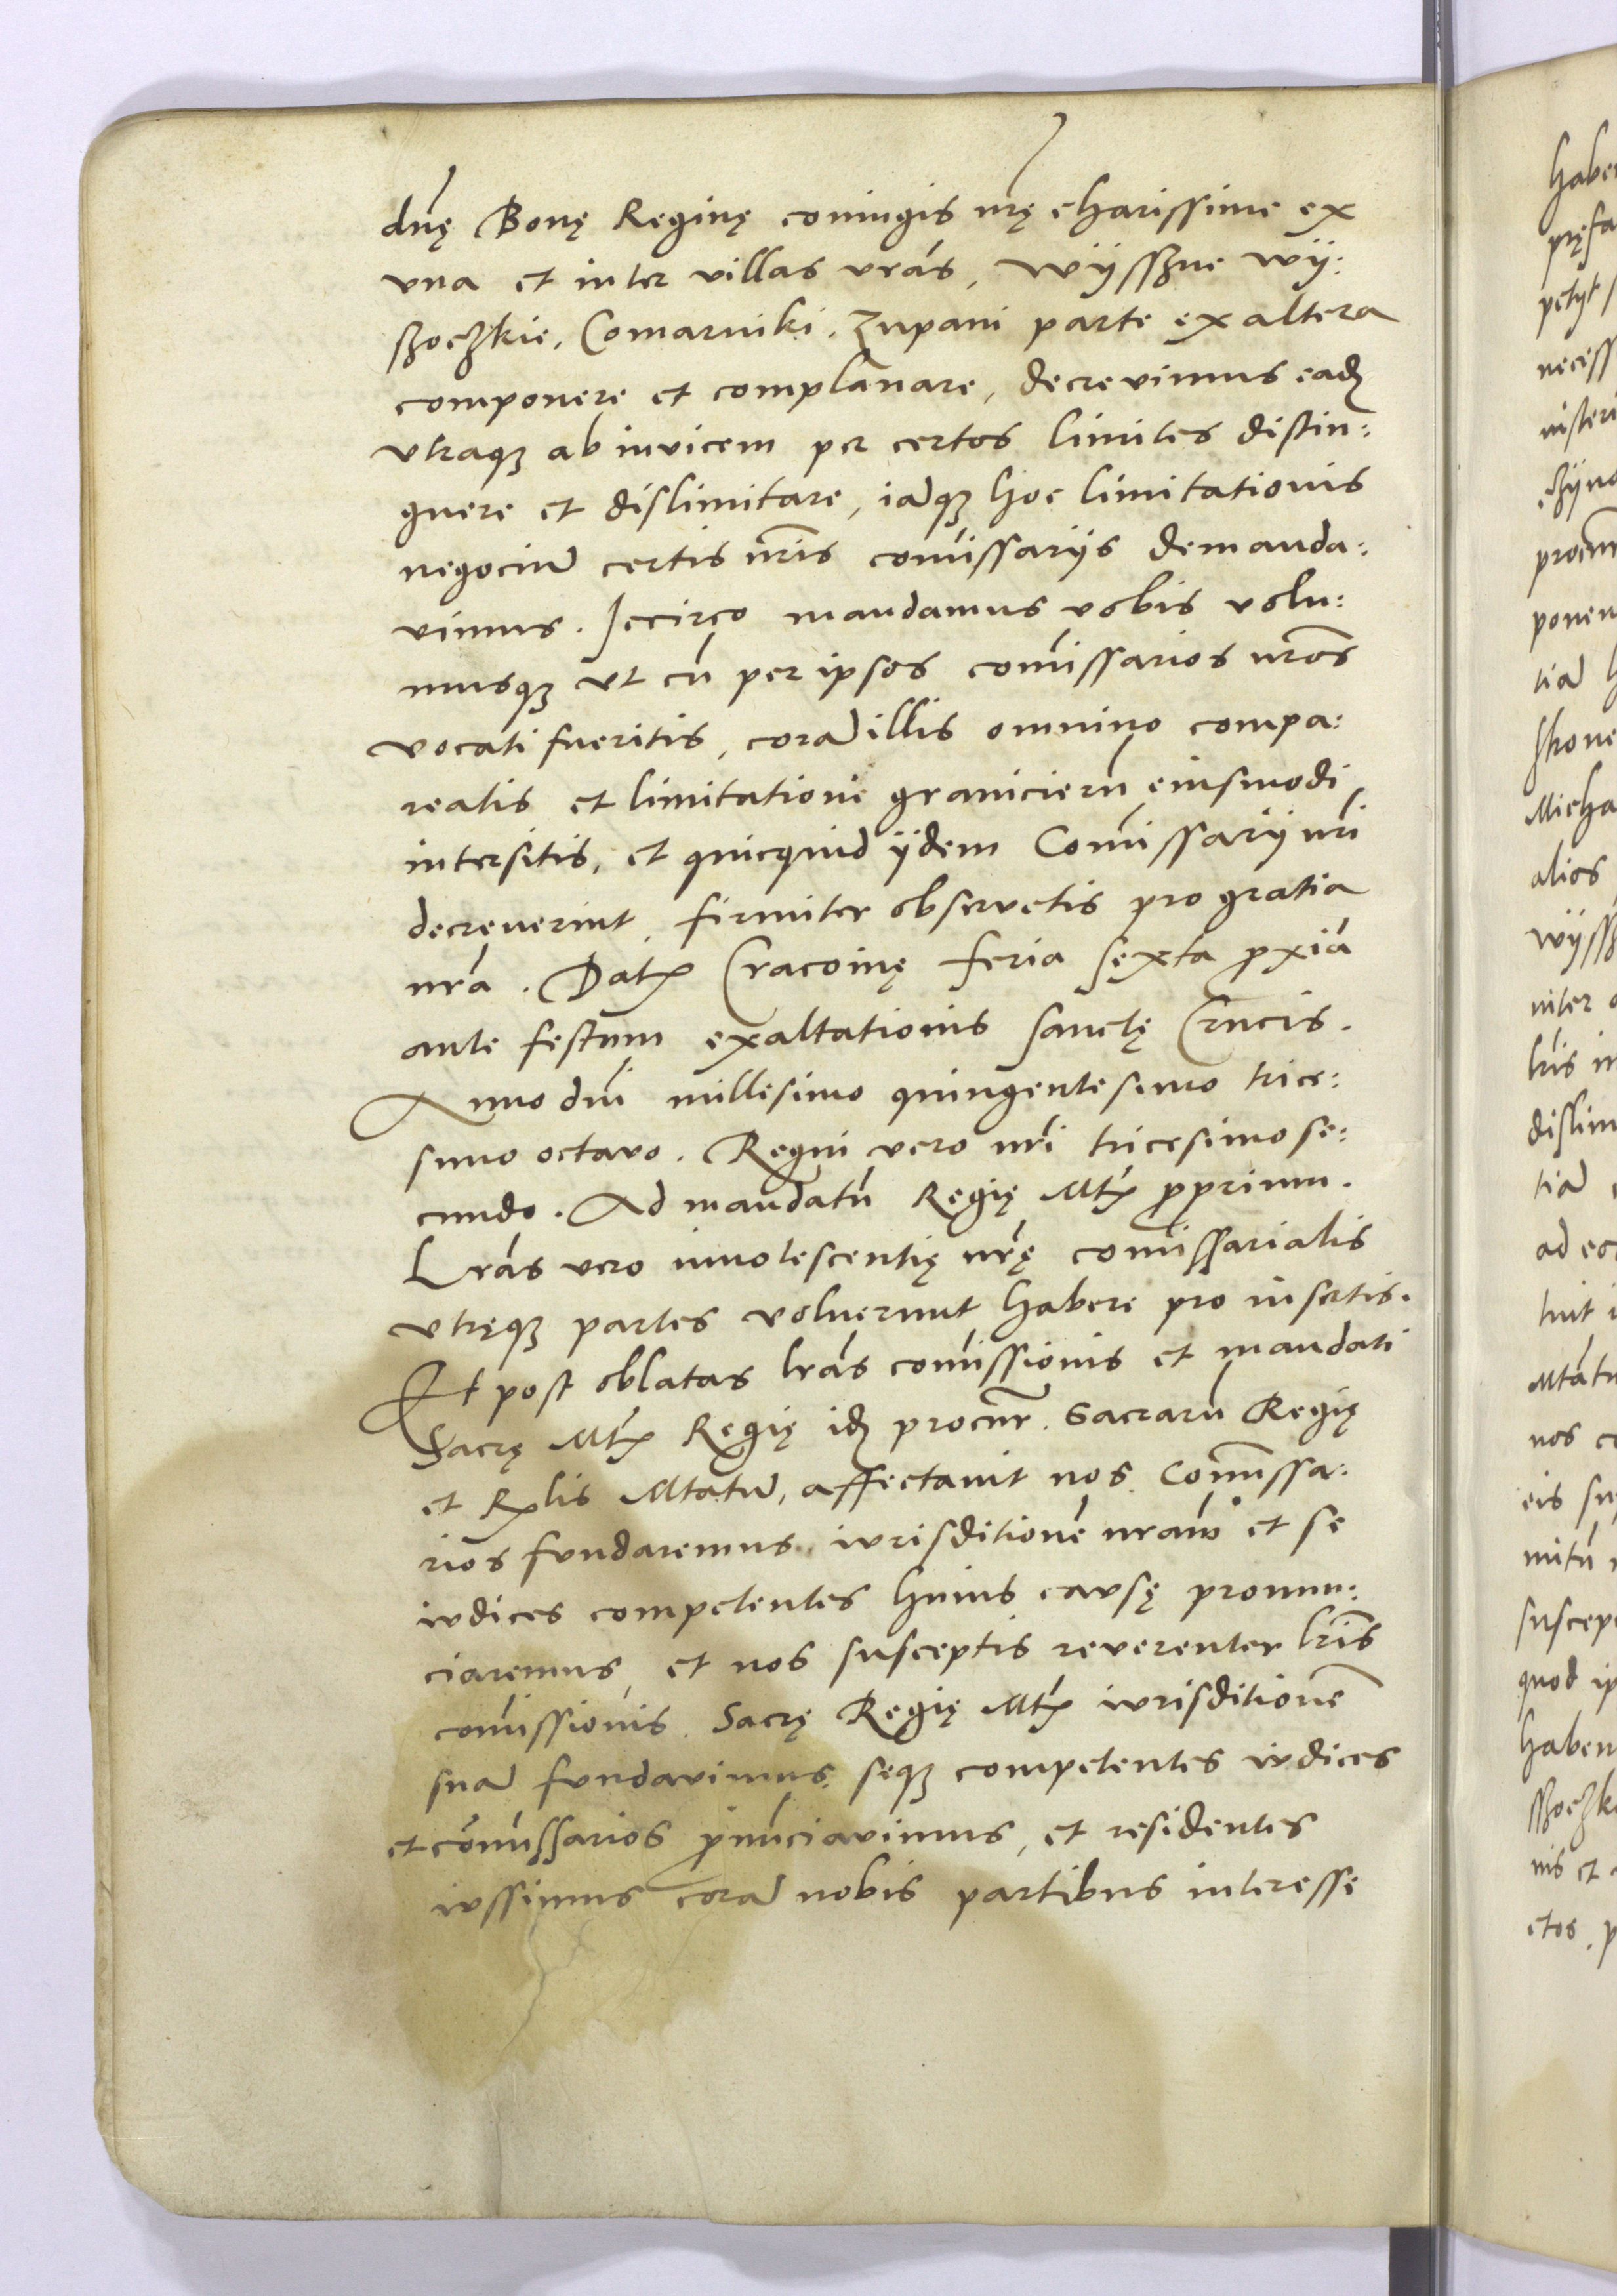 dnę Bonę Reginę coniugis nrę charissime ex
vna et inter villas vras, Wÿsszne Wÿ:
szoczkie, Comarniki, Zupani parte ex altera
componere et complanare, decrevimus eadꝫ
vtraqꝫ ab invicem per certos limites distin:
guere et dislimitare, iaqꝫ hoc limitationis
negociū certis nris comissarijs demanda:
vimus. Iccirco mandamus vobis volu:
musqꝫ vt cū per ipsos comissarios nros
vocati fueritis, corā illis omnino compa:
reatis et limitationi granicierū eiusmodi
intersitis, et quicquid ÿdem Comissarÿ nri
decreverint, firmiter observetis pro gratia
nra. Datꝝ Cracovię feria sexta ꝓxiā
ante festum exaltationis sanctę Crucis.
Anno dni millesimo quingentesimo trice:
simo octavo. Regni vero nri tricesimo se:
cundo. Ad mandatū Regię Mtꝭ ꝓprium.
Lras vero innotescentię nrę comissarialis
vtręqꝫ partes voluerunt habere pro insertis.
Et post oblatas lras comissionis et mandati
Sacrę Mtꝭ Regię idꝫ procur̄. Sacrarū Regię
et Rꝭlis Mtatū, affectavit nos Comissa:
rios fundaremus iurisditionē nram et se
iudices competentes huius causę pronun:
ciaremus, et nos susceptis reverenter lris
comissionis Sacrę Regię Mtꝭ iurisditionē
suā fundavimus, seqꝫ competentes iudices
et comissarios ꝓnūciavimus, et residentes
iussimus corā nobis partibus interesse